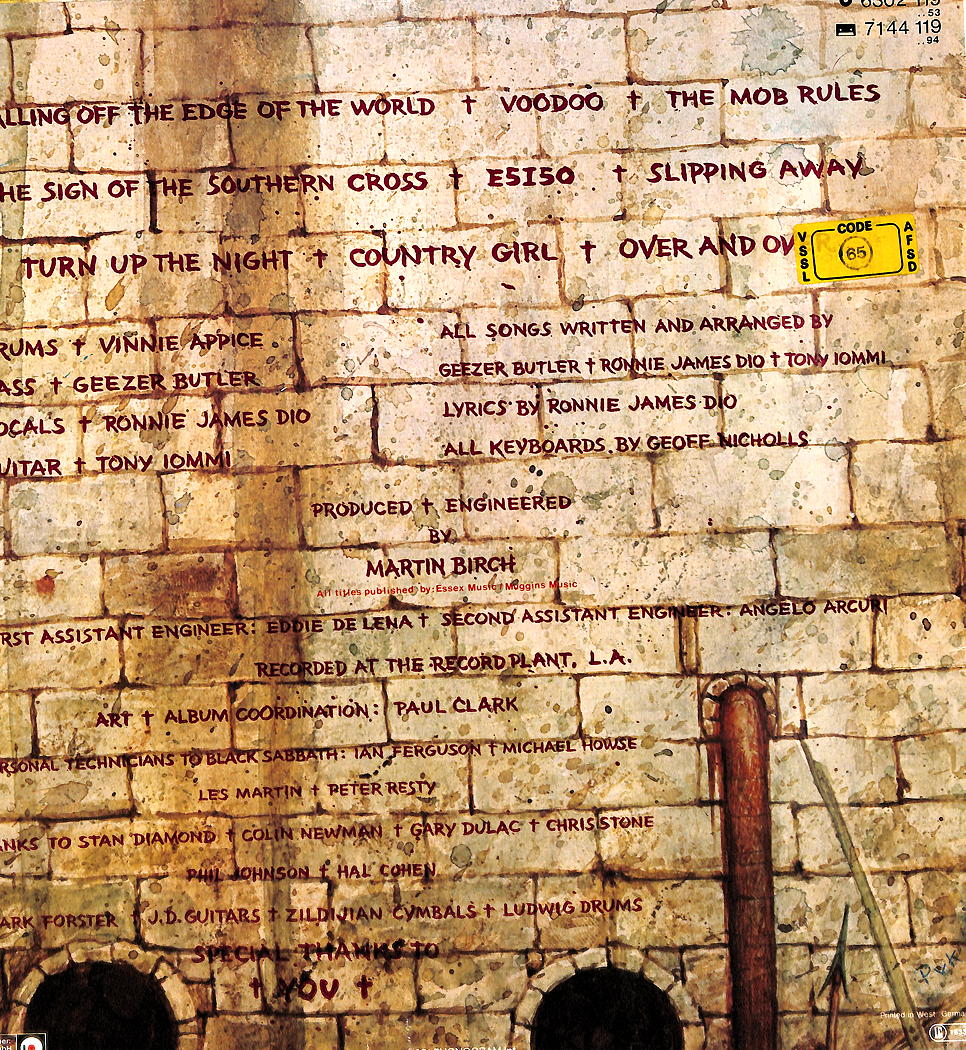 6302 119
..53
7144 119
..94
ALLING OFF THE EDGE OF THE WORLD † VOODOO † THE MOB RULES
HE SIGN OF THE SOUTHERN CROSS † E5150 † SLIPPING AWAY
TURN UP THE NIGHT † COUNTRY GIRL † OVER AND OV
VSSL CODE 65 AFSD
RUMS † VINNIE APPICE
ASS † GEEZER BUTLER
OCALS † RONNIE JAMES DIO
UITAR † TONY IOMMI
ALL SONGS WRITTEN AND ARRANGED BY
GEEZER BUTLER † RONNIE JAMES DIO † TONY IOMMI
LYRICS BY RONNIE JAMES DIO
ALL KEYBOARDS BY GEOFF NICHOLLS
PRODUCED † ENGINEERED
BY
MARTIN BIRCH
All titles published by: Essex Music / Muggins Music
RST ASSISTANT ENGINEER: EDDIE DE LENA † SECOND ASSISTANT ENGINEER: ANGELO ARCURI
RECORDED AT THE RECORD PLANT, L.A.
ART † ALBUM COORDINATION: PAUL CLARK
RSONAL TECHNICIANS TO BLACK SABBATH: IAN FERGUSON † MICHAEL HOWSE
LES MARTIN † PETER RESTY
ANKS TO STAN DIAMOND † COLIN NEWMAN † GARY DULAC † CHRIS STONE
PHIL JOHNSON † HAL COHEN
ARK FORSTER † J.D. GUITARS † ZILDJIAN CYMBALS † LUDWIG DRUMS
SPECIAL THANKS TO
† YOU †
Printed in West Germa